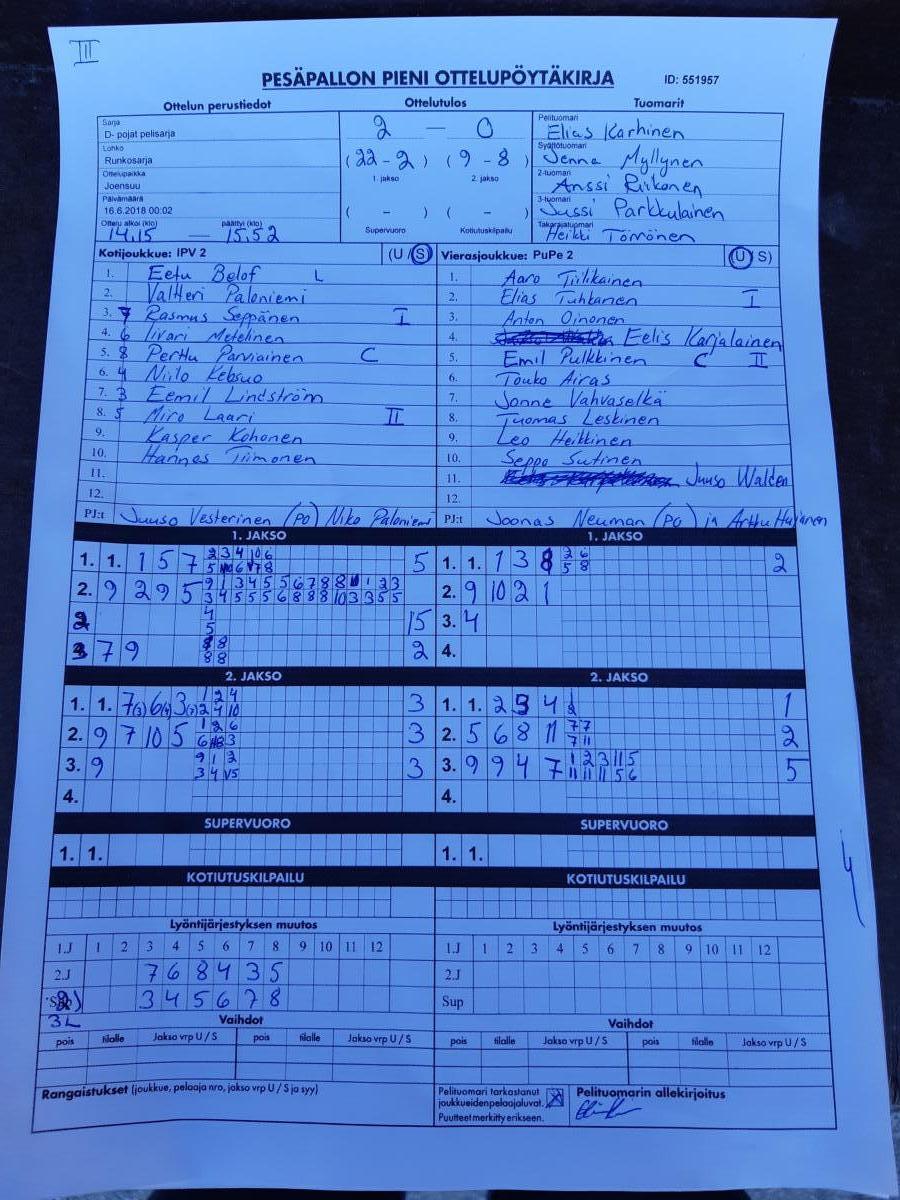 III
PESÄPALLON PIENI OTTELUPÖYTÄKIRJA ID: 551957
Ottelun perustiedot Ottelutulos Tuomarit
Sarja
D- pojat pelisarja
Lohko
Runkosarja
Ottelupaikka
Joensuu
Päivämäärä
16.6.2018 00:02
Ottelu alkoi (klo) päättyi (klo)
14.15 — 15.52
2 — 0
(22 - 2) (9 - 8)
1. jakso 2. jakso
( - ) ( - )
Supervuoro Kotiutuskilpailu
Pelituomari
Elias Karhinen
Syöttötuomari
Jenna Myllynen
2-tuomari
Anssi Riikonen
3-tuomari
Jussi Parkkulainen
Takarajatuomari
Heikki Törrönen
Kotijoukkue: IPV 2 (U / S)
1. Eetu Belof L
2. Valtteri Paloniemi
3. 7 Rasmus Seppänen I
4. 6 Iivari Metelinen
5. 8 Perttu Parviainen C
6. 4 Niilo Kebsuo
7. 3 Eemil Lindström
8. 5 Miro Laari II
9. Kasper Kohonen
10. Hannes Tiimonen
11.
12.
PJ:t Juuso Vesterinen (PO) Niko Paloniemi
Vierasjoukkue: PuPe 2 (U / S)
1. Aaro Tiilikainen
2. Elias Tuhkanen I
3. Anton Oinonen
4. Eelis Karjalainen
5. Emil Pulkkinen C II
6. Touko Airas
7. Jonne Vahvaselkä
8. Tuomas Leskinen
9. Leo Heikkinen
10. Seppo Sutinen
11. Juuso Walden
12.
PJ:t Joonas Neuman (PO) ja Arttu
1. JAKSO 1. JAKSO
1. 1. 1 5 7 5
2. 9 2 9 5
15
7 9 2
1. 1. 1 3 8 2
2. 9 10 2 1
3. 4
4.
2. JAKSO 2. JAKSO
1. 1. 3
2. 9 7 10 5 3
3. 9 3
4.
1. 1. 2 3 4 1
2. 5 6 8 11 2
3. 9 9 4 7 5
4.
SUPERVUORO SUPERVUORO
1. 1. 1. 1.
KOTIUTUSKILPAILU KOTIUTUSKILPAILU
Lyöntijärjestyksen muutos Lyöntijärjestyksen muutos
1.J 1 2 3 4 5 6 7 8 9 10 11 12 1.J 1 2 3 4 5 6 7 8 9 10 11 12
2.J 7 6 8 4 3 5 2.J
3 4 5 6 7 8 Sup
3L
Vaihdot Vaihdot
pois tilalle Jakso vrp U / S pois tilalle Jakso vrp U / S pois tilalle Jakso vrp U / S pois tilalle Jakso vrp U / S
Rangaistukset (joukkue, pelaaja nro, jakso vrp U / S ja syy)
Pelituomari tarkastanut
joukkueiden pelaajaluvat.
Puutteet merkitty erikseen.
Pelituomarin allekirjoitus